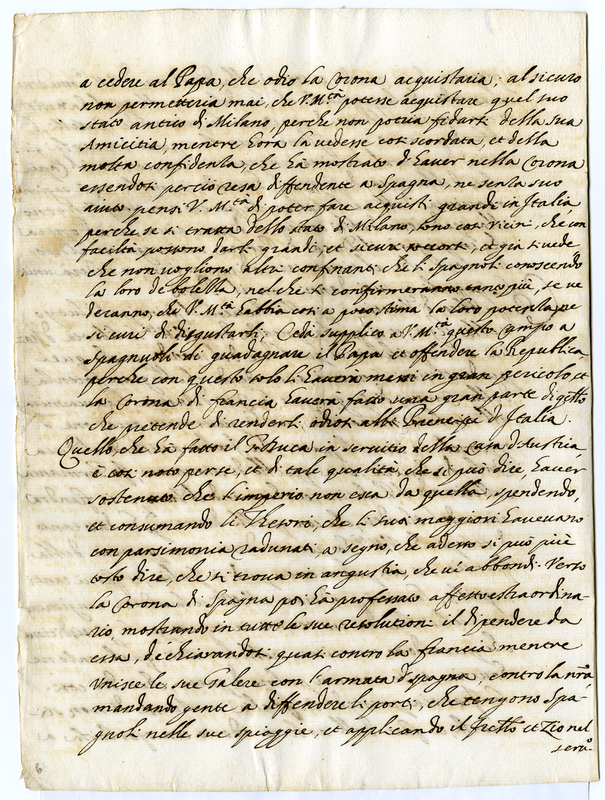 a cedere al Papa, che odio la Corona acquistaria; al sicuro
non permetteria mai, che V. M.tà potesse acquistare quel suo
stato antico di Milano, perche non potria fidarsi della sua
Amicitia, mentre hora la vedesse così scordata, et della
molta confidenza, che hà mostrato d'haver nella Corona
essendosi perciò resa diffendente a Spagna, ne senza suo
aiuto pensi V. M.tà di poter fare acquisti grandi in Italia
perche se si tratta dello stato di Milano, sono così vicini, che con
facilità possono darsi grandi, et sicuri soccorsi, et già si vede
che non vogliono altri confinanti che li Spagnoli conoscendo
la loro debolezza, nel che si confirmeranno tanto più, se ve
deranno, che V. M.tà habbia così a poco stima la loro potenza, che
si curi di disgustarli; Ceda supplico a V. M.tà questo campo a
Spagnuoli di guadagnare il Papa et offendere la Republica
perche con questo solo li haverà messi in gran pericolo, et
la Corona di francia haverà fatto una gran parte di quello
che pretende di rendersi odiosi alli Prencipi d'Italia.
Quello, che hà fatto il G. Duca in servitio della Casa d'Austria
è così noto per se, et di tale qualità, che si può dire, haver
sostenuto che l'imperio non esca da quella, spendendo,
et consumando li Thesori, che li suoi maggiori havevano
con parsimonia radunati, a segno, che adesso si può più
tosto dire, che si trova in angustia che vi abbondi. Verso
la Corona di Spagna poi hà professato affetto estraordina-
rio, mostrando in tutte le sue resolutioni il dipendere da
essa, dechiarandosi quasi contro la francia mentre
Unisce le sue Galere con l'armata di spagna, contro la nra
mandando gente a diffendere li porti, che tengono Spa-
gnoli nelle sue spiaggie, et applicando il frello et Zio nel
serv.o